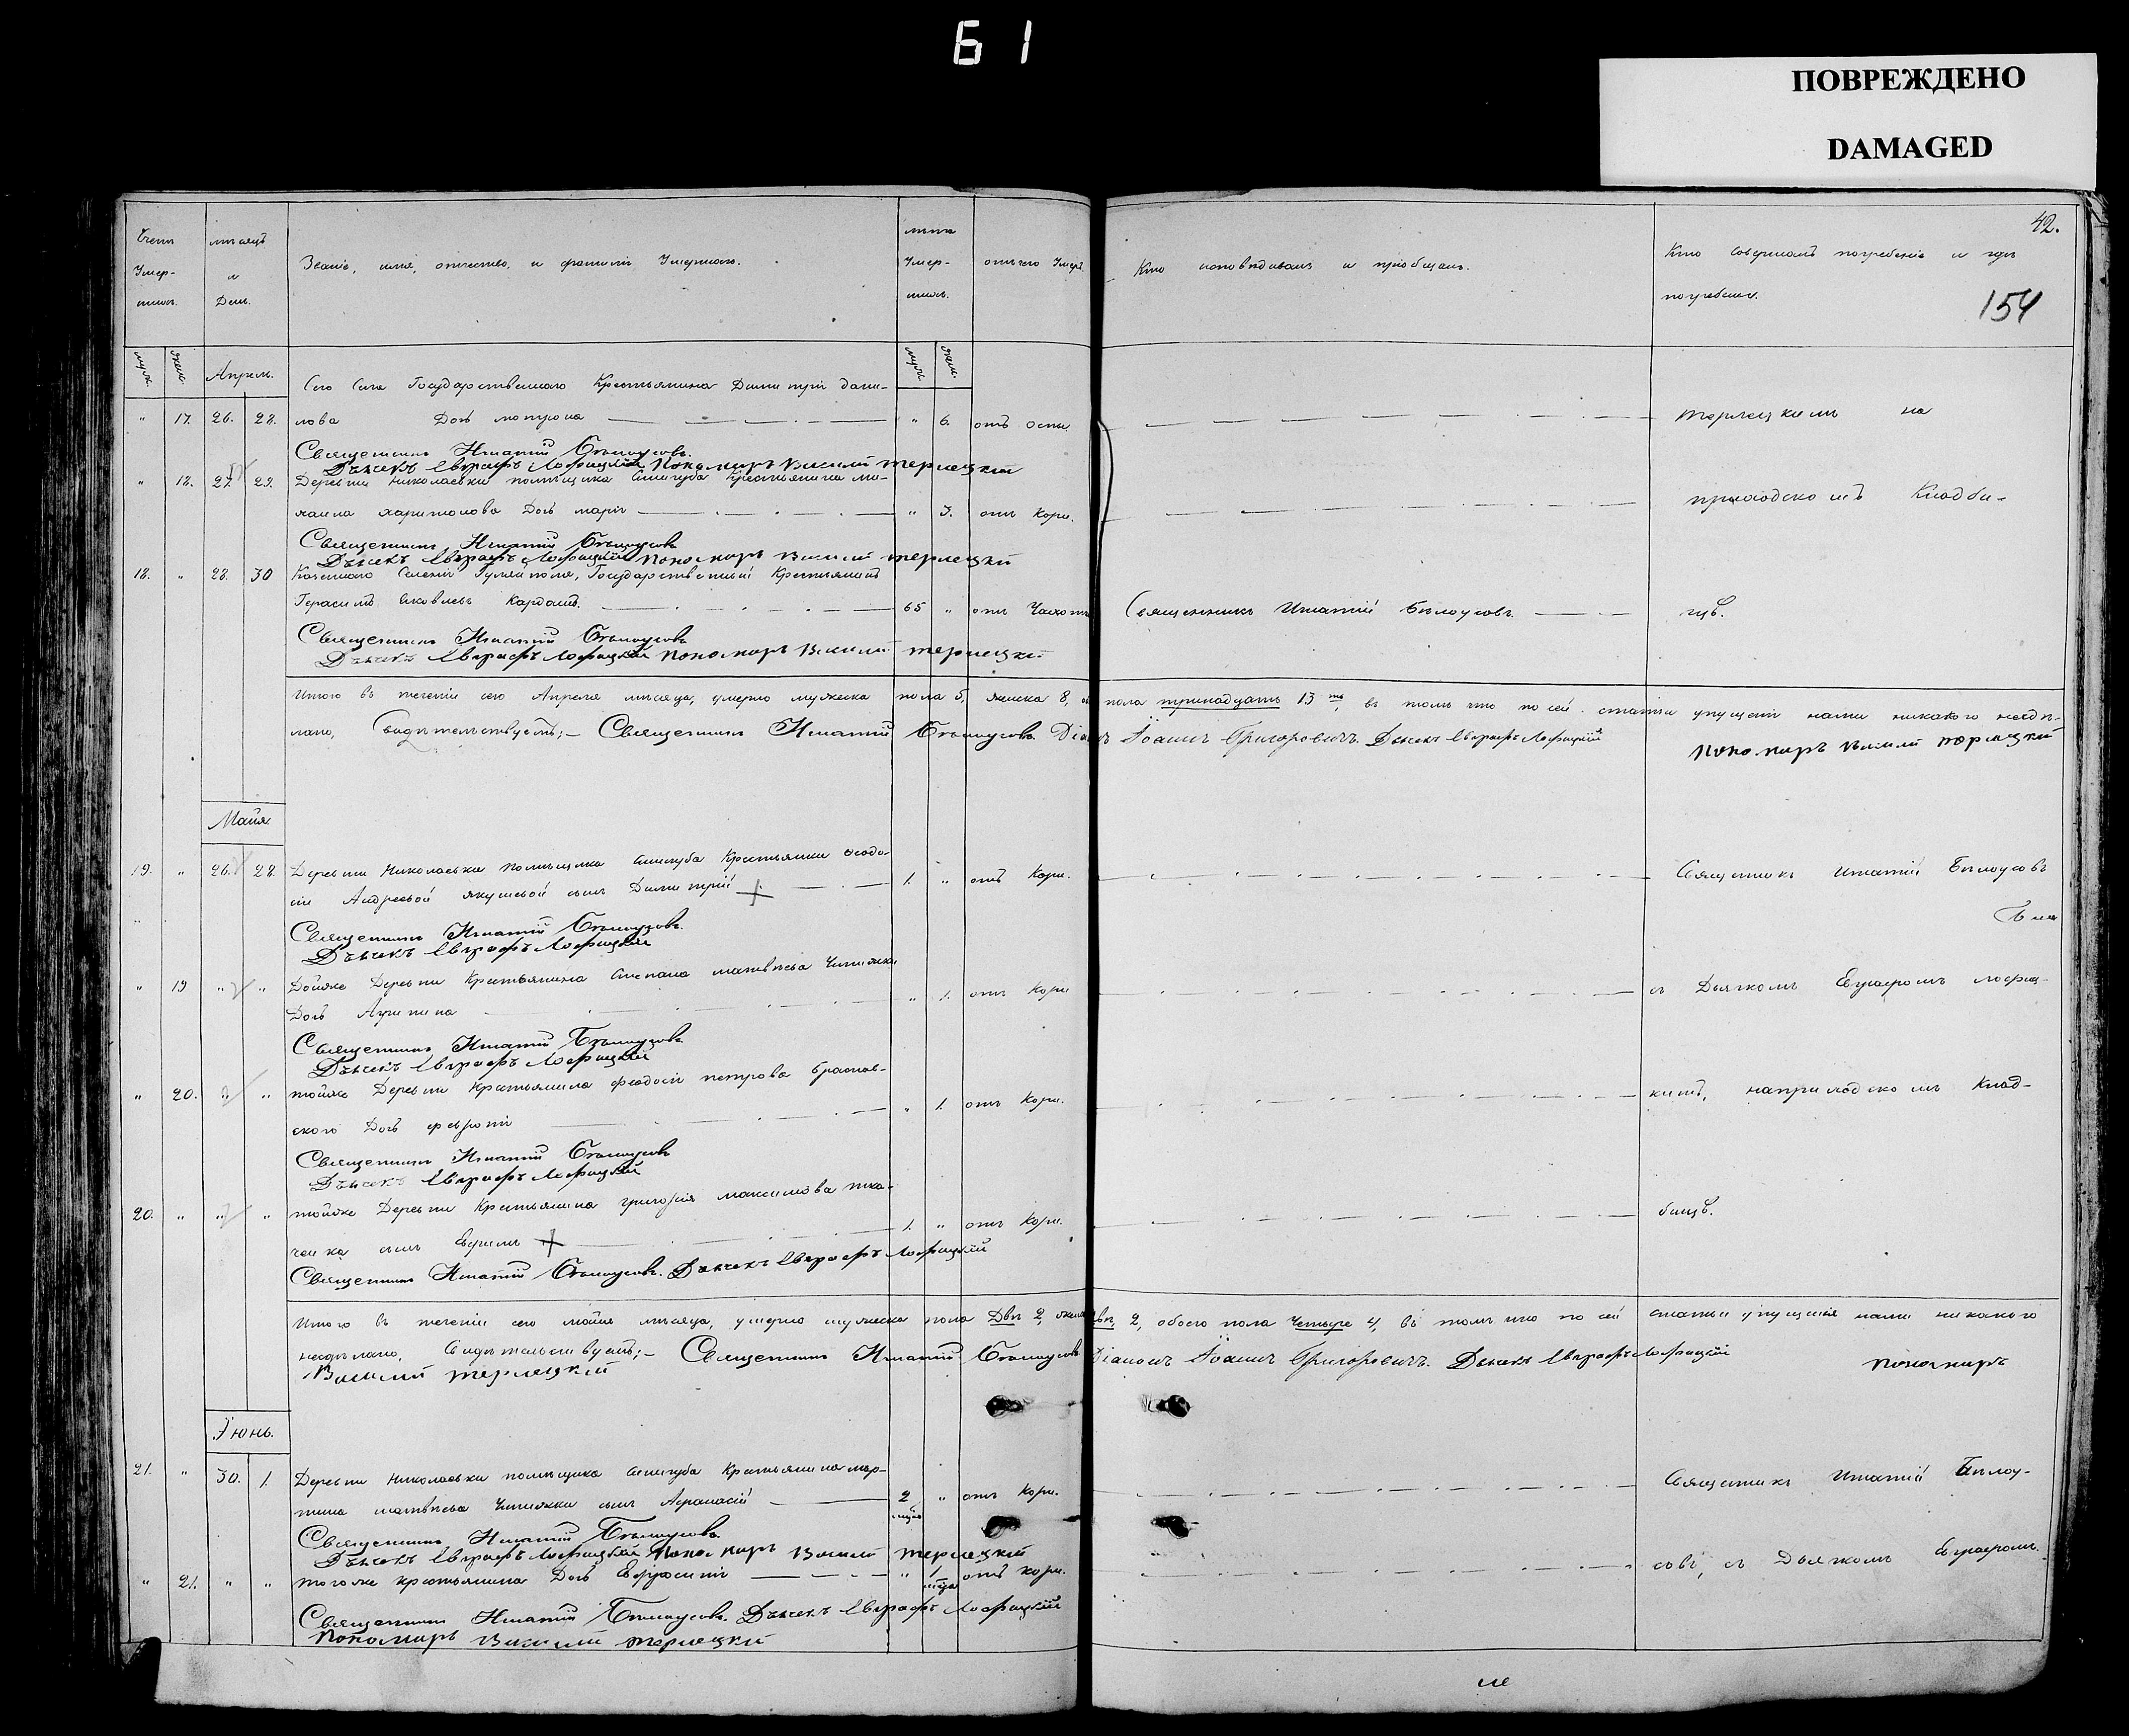 Б 1
ПОВРЕЖДЕНО
DAMAGED
42.
154
Счетъ Умер-шихъ.
мѣсяцъ и День.
Званіе, имя, отчество, и фамилія Умершаго.
лѣта Умер-шихъ.
отъ чего Умеръ
Кто исповѣдывалъ и пріобщалъ.
Кто совершалъ погребеніе и гдѣ погребены.
муж. жен. Апрѣль. муж. жен.
Сего Села Государственнаго Крестьянина Димитрія Дани-
" 17. 26. 28. лова Дочь Мотрона " 6. отъ оспы. Терлецкимъ на
Священникъ Игнатій Бѣлоусовъ.
Дьячекъ Евграфъ Лофицкій Пономарь Василій Терлецкій
" 18. 27. 29. Деревни Николаевки помѣщика Крестьянина Ми-
хаила Харитонова Дочь Марія " 3. отъ Кори. приходскомъ Кладби-
Священникъ Игнатій Бѣлоусовъ
Дьячекъ Евграфъ Лофицкій Пономарь Василій Терлецкій
18. " 28. 30 Казеннаго Селенія Гуляйполя, Государственный Крестьянинъ
Герасимъ Яковлевъ Кардашъ. 65 " отъ Чахот Священникъ Игнатій Бѣлоусовъ. щѣ.
Священникъ Игнатій Бѣлоусовъ
Дьячекъ Евграфъ Лофицкій Пономарь Василій Терлецкій
Итого въ теченіи сего Апрѣля мѣсяца, умерло мужеска пола 5, женска 8, пола тринадцать 13, въ томъ что по сей статьи упущенія нами никакого несдѣ-
лано, Свидѣтельствуемъ;- Священникъ Игнатій Бѣлоусовъ Діаконъ Іоаннъ Григоровичъ. Дьячекъ Евграфъ Лофицкій Пономарь Василій Терлецкій
Майя.
19. " 26. 28. Деревни Николаевки помѣщика Крестьянки Феодо-
сіи Андреевой Якушевой сынъ Димитрій 1. " отъ Кори. Священникъ Игнатій Бѣлоусовъ
Священникъ Игнатій Бѣлоусовъ.
Дьячекъ Евграфъ Лофицкій
" 19 " " Тойже Деревни Крестьянина Степана Матвѣева Чижика
Дочь Агрипина " 1. отъ Кори съ Дьячкомъ Евграфомъ Лофиц-
Священникъ Игнатій Бѣлоусовъ
Дьячекъ Евграфъ Лофицкій
" 20. " " тойже Деревни Крестьянина Феодосія Петрова Браслав-
скаго Дочь Февронія " 1. отъ Кори. кимъ, на приходскомъ Клад-
Священникъ Игнатій Бѣлоусовъ
Дьячекъ Евграфъ Лофицкій
20. " " " тойже Деревни Крестьянина Григорія Максимова Тка-
ченка сынъ Ефремъ 1. " отъ Кори. бищѣ.
Священникъ Игнатій Бѣлоусовъ. Дьячекъ Евграфъ Лофицкій
Итого въ теченіи сего Майя мѣсяца, умерло мужеска пола Двѣ 2, двѣ, 2, обоего пола Четыре 4, въ томъ что по сей статьи упущенія нами никакого
несдѣлано, Свидѣтельствуемъ;- Священникъ Игнатій Бѣлоусовъ Діаконъ Іоаннъ Григоровичъ. Дьячекъ Евграфъ Лофицкій Пономарь
Василій Терлецкій
Іюнь.
21. " 30. 1. Деревни Николаевки помѣщика Крестьянина Мар-
тина Матвѣева Чижика сынъ Афанасій 2 " отъ Кори. Священникъ Игнатій Бѣлоу-
Священникъ Игнатій Бѣлоусовъ.
Дьячекъ Евграфъ Лофицкій Пономарь Василій Терлецкій
" 21. " " тогоже крестьянина Дочь Ефросинія " 1 отъ кори. совъ, съ Дьячкомъ Евграфомъ
Священникъ Игнатій Бѣлоусовъ. Дьячекъ Евграфъ Лофицкій
Пономарь Василій Терлецкій